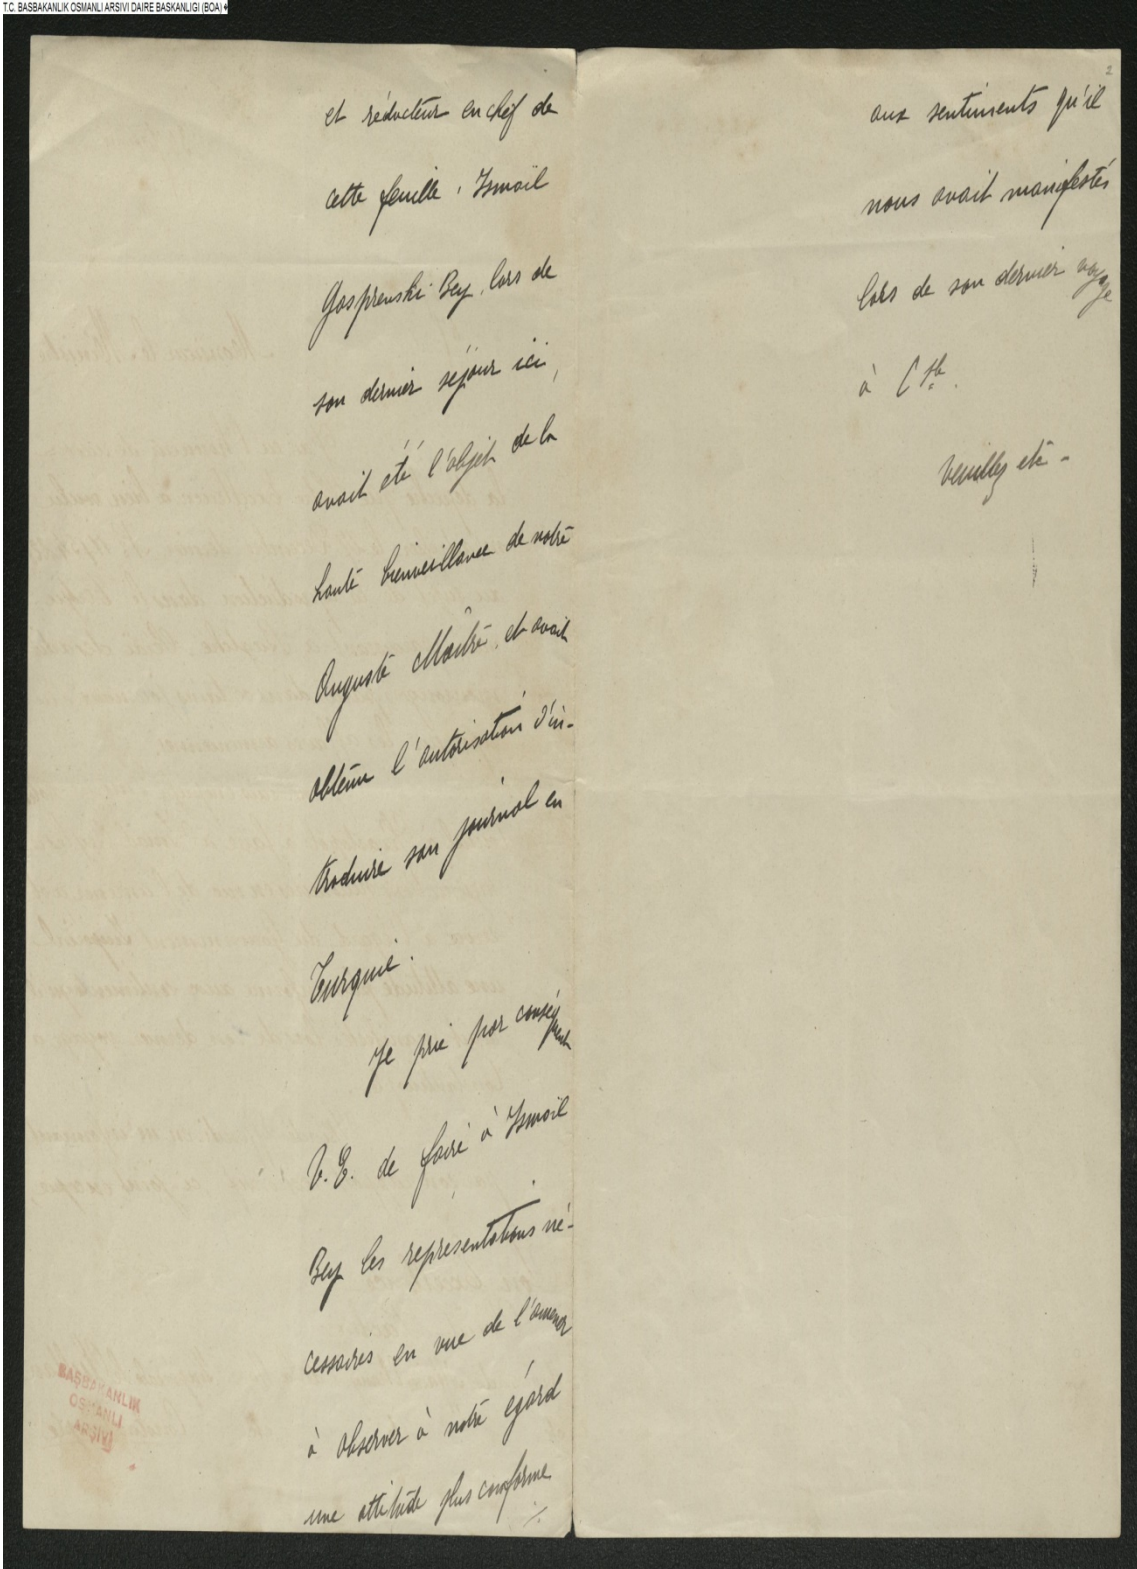 T.C. BASBAKANLIK OSMANLI ARSIVI DAIRE BASKANLIGI (BOA)
et rédacteur en chef de
cette feuille, Ismaïl
Gasprenski Bey, lors de
son dernier séjour ici,
avait été l'objet de la
haute bienveillance de notre
Auguste Maître, et avait
obtenu l'autorisation d'in-
troduire son journal en
Turquie.
Je prie par conséquent
V.E. de faire à Ismaïl
Bey les représentations né-
cessaires en vue de l'amener
à observer à notre égard
une attitude plus conforme
./.
BAŞBAKANLIK
OSMANLI
ARŞİVİ
2
aux sentiments qu'il
nous avait manifestés
lors de son dernier voyage
à Cple.
Veuillez etc -